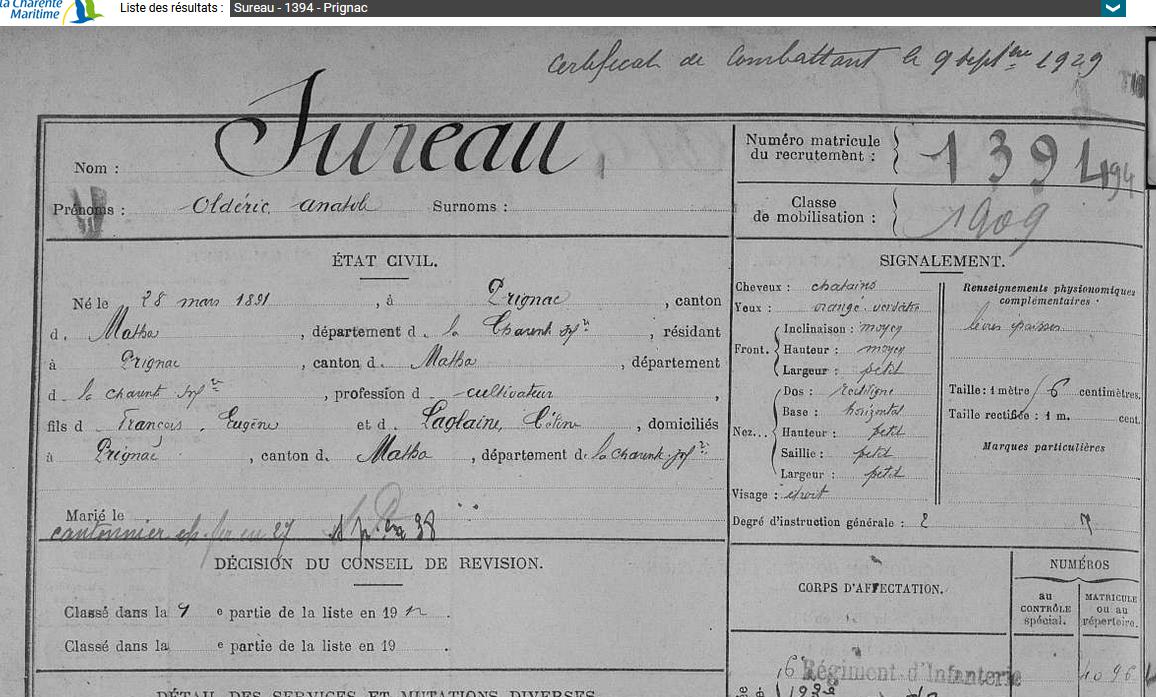 la Charente Maritime
Liste des résultats : Sureau - 1394 - Prignac
Certificat de Combattant le 9 septbre 1929
Nom : Sureau
Prénoms : Oldéric anatole Surnoms :
Numéro matricule du recrutement : 1394
Classe de mobilisation : 1909
ÉTAT CIVIL.
Né le 28 mars 1891, à Prignac, canton
d. Matha, département d. la Charente Infre, résidant
à Prignac, canton d. Matha, département
d la charente Infre, profession d cultivateur,
fils d François, Eugène et d. Laglaine, Céline, domiciliés
à Prignac, canton d. Matha, département d. la Charente Infre
Marié le
cantonnier
DÉCISION DU CONSEIL DE REVISION.
Classé dans la e partie de la liste en 1912.
Classé dans la e partie de la liste en 19 .
DÉTAIL DES SERVICES ET MUTATIONS DIVERSES
SIGNALEMENT.
Cheveux : chatains
Yeux : orangé verdâtre
Front. Inclinaison : moyen
Hauteur : moyen
Largeur : petit
Nez... Dos : rectiligne
Base : horizontal
Hauteur : petit
Saillie : petit
Largeur : petit
Visage : étroit
Renseignements physionomiques complémentaires :
lèvres épaisses
Taille : 1 mètre 56 centimètres.
Taille rectifiée : 1 m. cent.
Marques particulières
Degré d'instruction générale : 2
CORPS D'AFFECTATION.
NUMÉROS
au CONTRÔLE spécial.
MATRICULE ou au répertoire.
6e Régiment d'Infanterie